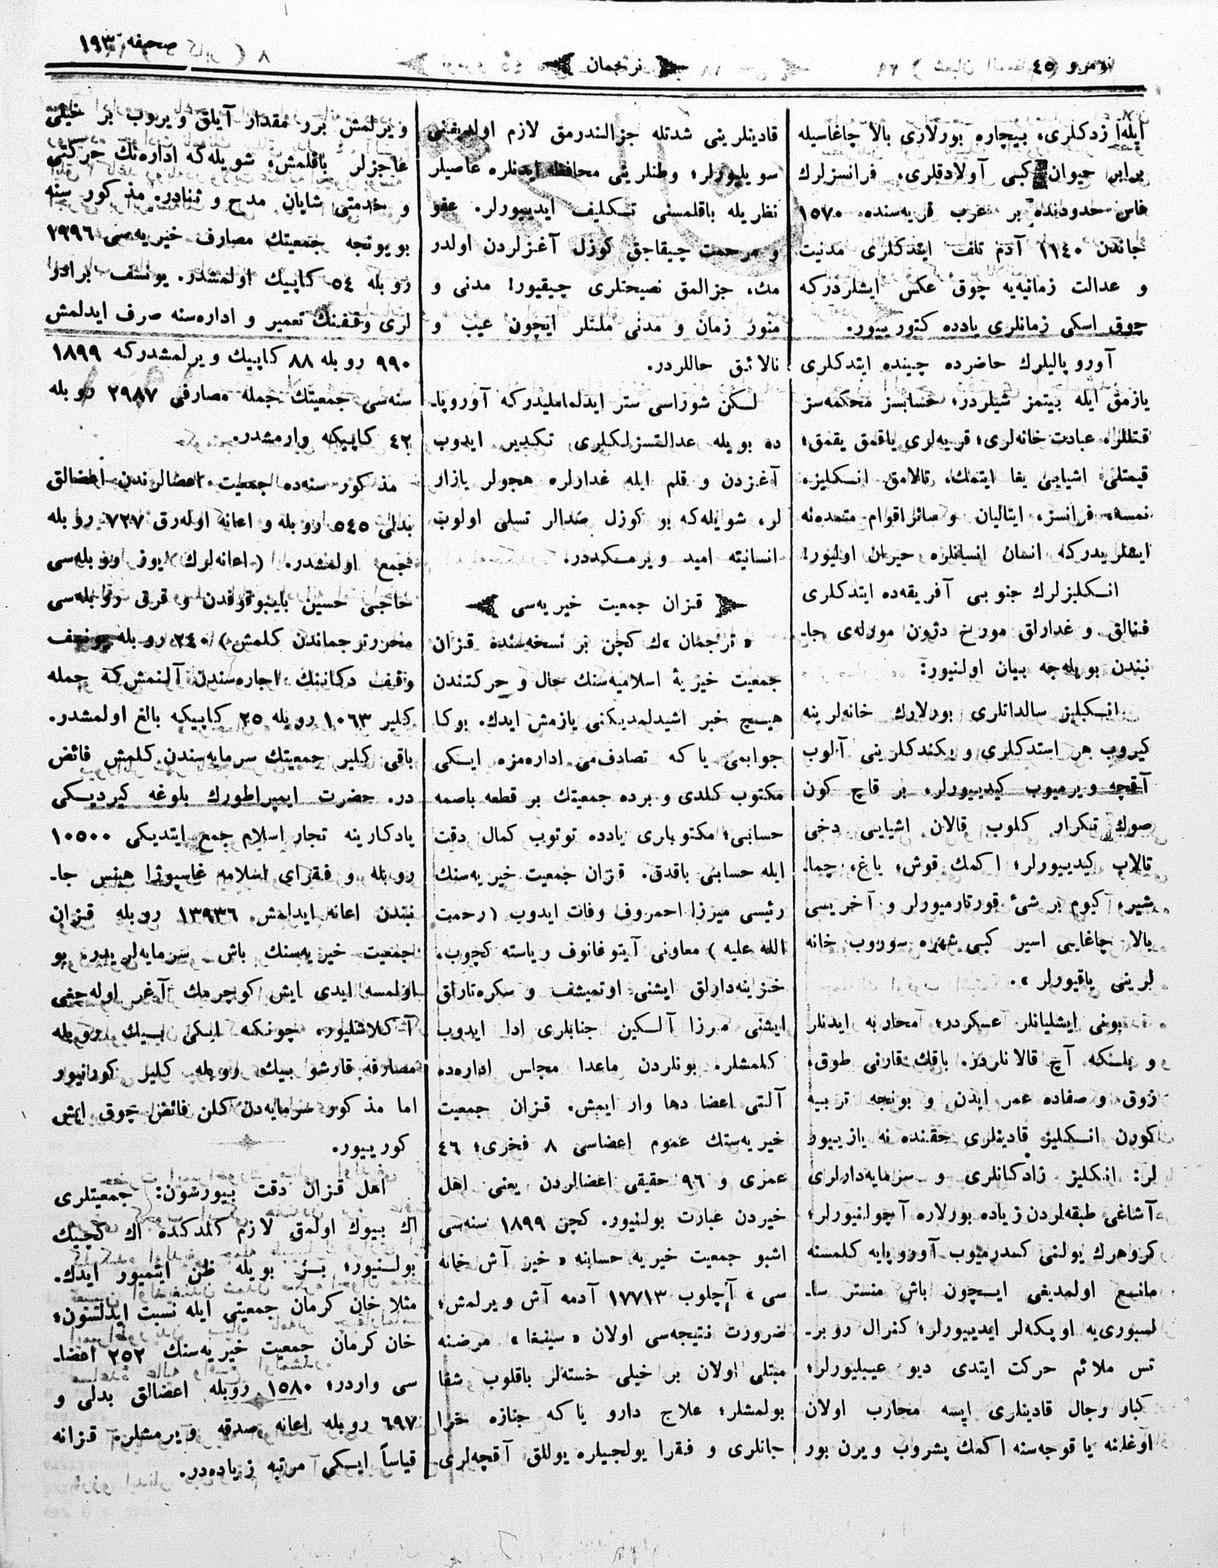 نومرو ٤٥
ترجمان
صحیفه ١٩٣
ایله ازدکلری، بیچاره بورلاری بالا چاغاسیله
برابر حیوان کبی آولادقلری، فرانسزلرك
فاس حدودنده بر عرب قریه‌سنده، ١٥٧٠
جاندن ١١٤٠ آدم تلف ایتدکلری مدنیت
و عدالت زمانیه‌یه چوق عکس ایشلردرکه
چوق اسکی زمانلری یادده کتوریيور.
آوروپالیلرك حاضرده چینده ایتدکلری
یازمق ایله بیتمز شیلردر؛ حسابسز محکمه‌سز
قتللر، عبادت خانه‌لری؛ قریه‌لری یاقمق یقمق؛
قیمتلی اشیایی یغا ایتمك، تالامق انـکلیز،
نمسه، فرانسز، ایتالیان و سائر اقوام متمدنه
ایشلریدرکه انسان انسانلره حیران اولیور!
انـکلیزلرك جنوبی آفریقه‌ده ایتدکلری
قتالق و غدارلق مورخ دژون مورله‌ی جا-
نبندن بویله‌جه بیان اولنیور:
انـکلیز سالداتلری بورلارك خانه‌لرینه
کیروب هر استدکلری و بکندکلرینی آلوب
آقچه ویرمیوب کیدییورلر. بر قاچ کون
صوك تکرار کلوب قالان اشیایی دخی
تالاپ کیدییورلر؛ اکمك قوش، یاغ، چما-
شیر، آکیوم بر شئ قورتارمیورلر و آخریسی
بالا چاغایی اسیر کبی شهره سوروب خانه
لرینی یاقیورلر ».
بونی ایشلیانلر عسکردر؛ محاربه ایدنلر
و بلـکه آچ قالانلردر. باقك قارنی طوق،
ذوق و صفاده عمر ایدن و بونجه تربیه
کورن انـکلیز قادینلری حقنده نه یازییور
لر: انکلیز زادکانلری و سرمایه‌دارلری
آشاغی طبقه‌لردن زیاده بورلاره آچولنیورلر؛
کروهرك یولنی کسدرمیوب آوروپایه کلمسنه
مانـع اولمدیغی ایـچون باش منستر سا-
لسبوری‌یه اوپکه‌لر ایدییورلر؛ کنرال روبر-
تس ملائم حرکت ایتدی دیو عیبلیورلر؛
کبار رجال قادینلری ایسه محارب اولان
اوغلنه یا قوجه‌سنه اکمك پشروب ویرن بور
قادینلرینی شدتله جزالندرمق لازم اولدیغنی
سویلیورلر؛ وطنلرینی محافظه ایدنلره عاصیلر
نظریله باقلمسنی تـکلیف ایدییورلر. عفو
و مرحمت چیقاجق کوزل آغزلردن اولدر
مك، جزالمق نصیحتلری چیقیور! مدنی و
منور زمان و مدنی ملتلر ایچون عیب و
نالائق حاللردر.
لـکن شوراسی ستر ایدلماملیدرکه آوروپا-
ده بویله عدالتسزلـکلری تـکدیر ایدوب
آغزدن و قلم ایله غدارلره هجولر یازار
لر. شویله‌که بو کوزل صدالر تسلی اولوب
انسانیته امید ویرمـکده‌در.
قـزان جمعیت خیریه‌سی
« ترجمان »ك کچن بر نسخه‌سنده قـزان
جمعیت خیریۀ اسلامیه‌سنك حال و حرکتندن
هیـچ خبر اشیدلمدیکنی یازمش ایدك. بوکا
جوابمی یا که تصادف‌می اداره‌مزه ایـکی
مکتوب کلدی و برده جمعیتك بر قطعه باصمه
حسابی؛ مکتوبلری یادده توتوب کمال دقت
ایله حسابنی باقدق. قـزان جمعیت خیریه‌سنك
رئیسی میرزا احمروف وفات ایدوب (رحمت
الله علیه) معاونی آیتوفانوف ریاسته کچوب،
خزینه‌دارلق ایشنی اوتمیشف و سکره‌تارلق
ایشنی مرزا آلـکین جنابلری ادا ایدوب
کلمشلر. بونلردن ماعدا مجلس اداره‌ده
آلتی اعضا دها وار ایمش. قـزان جمعیت
خیریه‌سنك عموم اعضاسی ٨ فخری؛ ٤٦
عمری و ٩٦ حقیقی اعضالردن یعنی اهل
خیردن عبارت بولنیور. کچن ١٨٩٩ سنه‌سی
اشبو جمعیت خیریه حسابنه « خیر آش خانه
سی » آچلوب ١٧٧١٣ آدمه آش ویرلمش؛
ضرورت نتیجه‌سی اولان « سینغا » مرضنه
مبتلی اولان بر خیلی خسته‌لر باقلوب شفا
بولمشلر؛ علاج دارو یا که جنازه خرا
جاتلری و فقرا یولجیلره یوللق آقچه‌لری
ویرلمش برر مقدار آیلق ویروب بر خیلی
عاجزلر باقلمش، شویله‌که اداره‌نك حرکتی
و خدمتی شایان مدح و ثنادر. مذکور سنه
بویونجه جمعیتك مصارف خیریه‌سی ٢٩٩٦
روبله ٥٤ کاپیك اولمشدر. یونسف برادر
لری وقفینك تعمیر و اداره‌سنه صرف ایدلمش
٩٩٠ روبله ٨٨ کاپیك ویرلمشدرکه ١٨٩٩
سنه‌سی جمعیتك جمله مصارفی ٣٩٨٧ روبله
٤٢ کاپیکه وارمشدر.
مذکور سنه‌ده جمعیت اعضالرندن اعضالق
بدلی ٥٤٥ روبله و اعانه اوله‌رق ٧٢٧ روبله
جمع اولمشدر. (اعانه‌لرك یوز روبله‌سی
حاجی حسین بایبوقوفدن و قرق روبله‌سی
محرر ترجماندن کلمش) ٢٤٠ روبله یونـف
وقف دکاننك اجاره‌سندن آلنمش‌که جمله
کلیر ١٠٦٣ روبله ٢٥ کاپیکه بالغ اولمشدر.
باقی کلیر جمعیتك سرمایه‌سندن کلمش فائض
در. حضرت ایمپراطورك بلوغه کیردیـکی
یادکارینه تجار اسلام جمع ایتدیکی ١٠٥٠٠
روبله و فقرای اسلامه غاسپوژا هینس جا-
نبندن اعانه ایدلمش ١٣٩٣٦ روبله قـزان
جمعیت خیریه‌سنك باش سرمایه‌لریدر. بو
اولمسه ایدی ایش کوچرمك آغر اوله‌جغی
آکلاشلیور. چونکه ایکی بیـك روبله
مصارفه قارشو بیك روبله کلیر کورنیور
اما مذکور سرمایه‌دن کلن فائض چوق ایمش
کورییور.
اهل قـزان دقت بیورشون: جمعیتلری
اك بیوك اولمق لازم کلدکده اك کچینك
بولـنیور؛ بـز بویله ظن ایتمیور ایدك.
مثلا خان کرمان جمعیتی ایله نسبت ایدلسون؛
خان کرمان جمعیت خیریه‌سنك ٢٥٢ اعضا-
سی واردر؛ ١٥٨٠ روبله اعضالق بدلی و
٦٩٧ روبله اعانه صدقه ویرمشلر. قـزانه
قیاساً ایـکی مرتبه زیاده‌در.